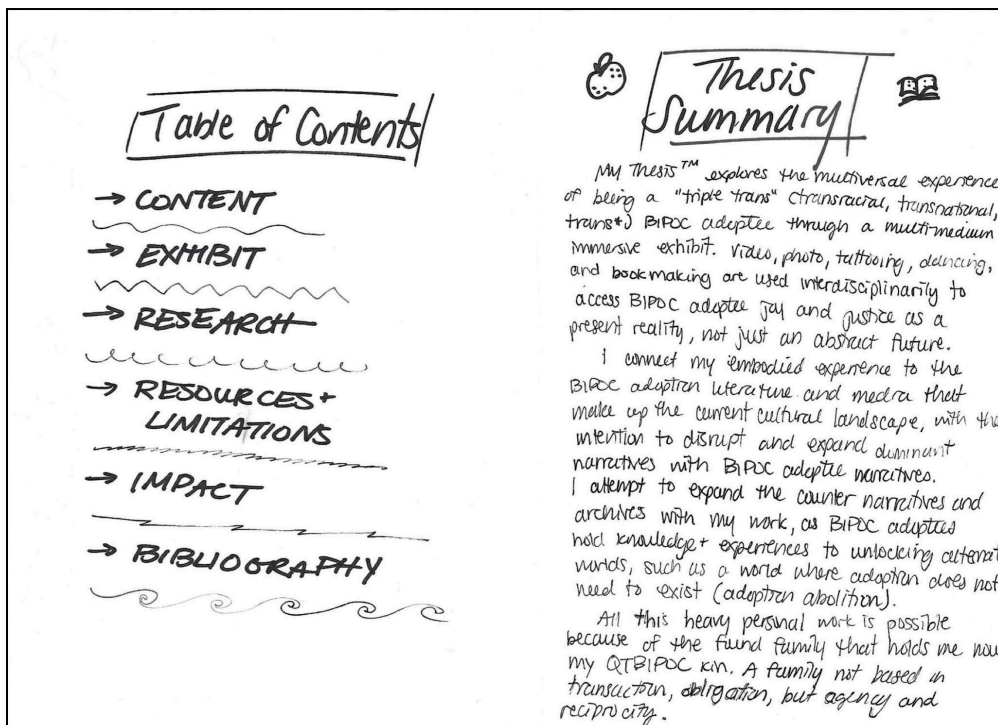 Table of Contents
→ CONTENT
→ EXHIBIT
→ RESEARCH
→ RESOURCES +
LIMITATIONS
→ IMPACT
→ BIBLIOGRAPHY
Thesis
Summary
My Thesis™ explores the multiversal experience
of being a "triple trans" (transracial, transnational,
trans+) BIPOC adoptee through a multi-medium
immersive exhibit. Video, photo, tattooing, dancing,
and bookmaking are used interdisciplinarily to
access BIPOC adoptee joy and justice as a
present reality, not just an abstract future.
I connect my embodied experience to the
BIPOC adoption literature and media that
make up the current cultural landscape, with the
intention to disrupt and expand dominant
narratives with BIPOC adoptee narratives.
I attempt to expand the counter narratives and
archives with my work, as BIPOC adoptees
hold knowledge + experiences to unlocking alternat
worlds, such as a world where adoption does not
need to exist (adoption abolition).
All this heavy personal work is possible
because of the found family that holds me now
my QTBIPOC kin. A family not based in
transaction, obligation, but agency and
reciprocity.